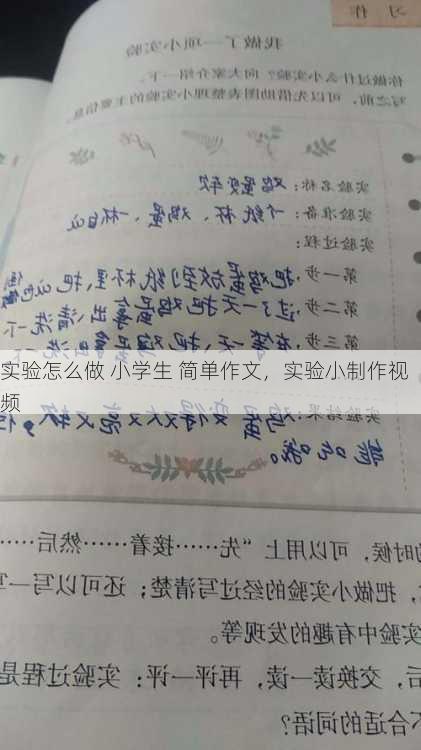 习 作
我做了一项小实验
你做过什么小实验？向大家介绍一下。
写之前，可以先借助图表整理小实验的主要信息。
实验名称：鸡蛋变软
实验准备：一个纸杯、鸡蛋、一杯白
实验过程：
第一步：把鸡蛋放到纸杯里，把
第二步：过了一天把鸡蛋拿出，清洗一下
第三步：在等一天，把鸡蛋
实验怎么做 小学生 简单作文，实验小制作视
频
实验结果：鸡蛋变得又大又亮又软，
的时候，可以用上“先……接着……然后……
，把做小实验的经过写清楚；还可以写一写
实验中有趣的发现等。
后，交换读一读，再评一评：实验过程是
不合适的词语？